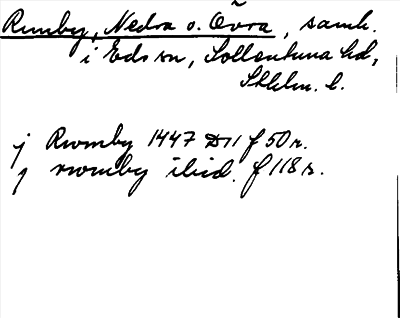 Runby, Nedra o. Övra, samh.
i Eds sn, Sollentuna hd,
Sthlm. l.
j Rwmby 1447 D11 f 50 r.
j rwmby ibid. f 118 r.